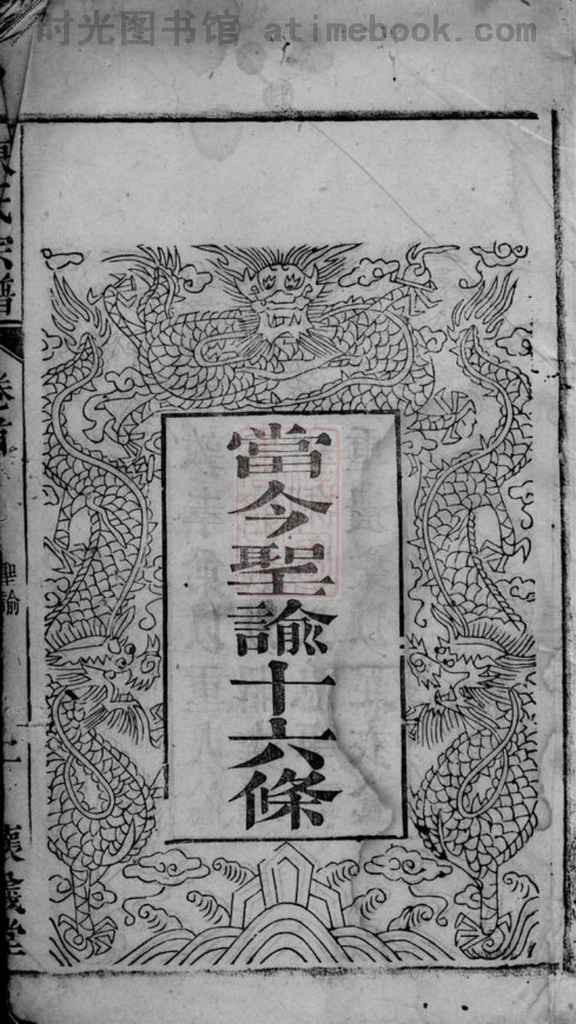 时光图书馆 atimebook.com
當今聖諭十六條
氏宗譜
卷首
聖諭
一